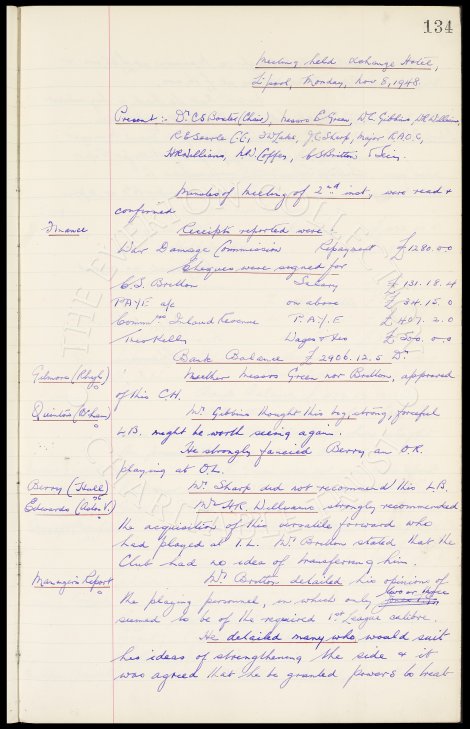 134
Meeting held Exchange Hotel,
L'pool, Monday, Nov. 8, 1948.
Present :- Dr. C.S. Baxter (Chair), Messrs E. Green, W.C. Gibbins, R. Williams,
R.E. Searle C.C., T.W. Lake, J.C. Sharp, Major R.A.O.C.,
H.R. Williams, N.W. Coffey, C.S. Britton &
Minutes of Meeting of 2nd inst, were read &
confirmed
Finance Receipts reported were :
War Damage Commission Repayment £1280.0.0
Cheques were signed for
C.S. Britton Salary £ 131.18.4
P.A.Y.E a/c on above £ 34.15.0
Comm'rs Inland Revenue P.A.Y.E £ 407.2.0
Theo Kelly Wages & £ 500.0.0
Bank Balance £2906.12.5 Dr
Gilmore (Rhyl) Neither Messrs Green nor Britton, approved
of this C.H.
Quinton (W'ham) Mr. Gibbins thought this big, strong, forceful
L.B. might be worth seeing again.
He strongly fancied Berry an O.R.
playing at O.L.
Berry (Hull) Mr. Sharp did not recommend this L.B.
Edwards (Aston V.) Mr. H.R. Williams strongly recommended
the acquisition of this versatile forward who
had played at I.L. Mr. Britton stated that the
Club had no idea of transferring him.
Managers Report Mr. Britton detailed his opinion of
the playing personnel, in which only two or three
seemed to be of the required 1st League calibre.
He detailed many who would suit
his ideas of strengthening the side & it
was agreed that he be granted powers to treat
THE EVERTON COLLECTION CHARITABLE TRUST